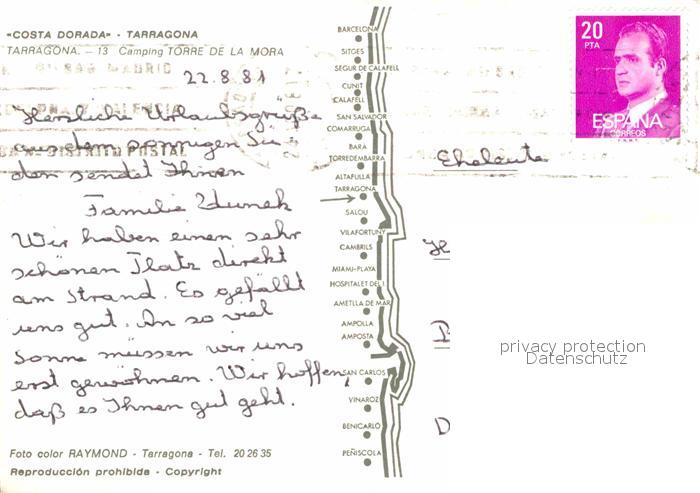 "COSTA DORADA" - TARRAGONA
TARRAGONA. - 13 Camping TORRE DE LA MORA
22.8.81
Herzliche Urlaubsgrüße
aus dem sonnigen Sü
den sendet Ihnen
Familie
Wir haben einen sehr
schönen Platz direkt
am Strand. Es gefällt
uns gut. An so viel
Sonne müssen wir uns
erst gewöhnen. Wir hoffen,
daß es Ihnen gut geht.
Foto color RAYMOND - Tarragona - Tel. 20 26 35
Reproducción prohibida - Copyright
BARCELONA
SITGES
SEGUR DE CALAFELL
CUNIT
CALAFELL
SAN SALVADOR
COMARRUGA
BARA
TORREDEMBARRA
ALTAFULLA
TARRAGONA
SALOU
VILAFORTUNY
CAMBRILS
MIAMI-PLAYA
HOSPITALET DEL I.
AMETLLA DE MAR
AMPOLLA
AMPOSTA
SAN CARLOS
VINAROZ
BENICARLÓ
PEÑISCOLA
20
PTA
ESPAÑA
CORREOS
F.N.M.T.
Eheleute
privacy protection
Datenschutz